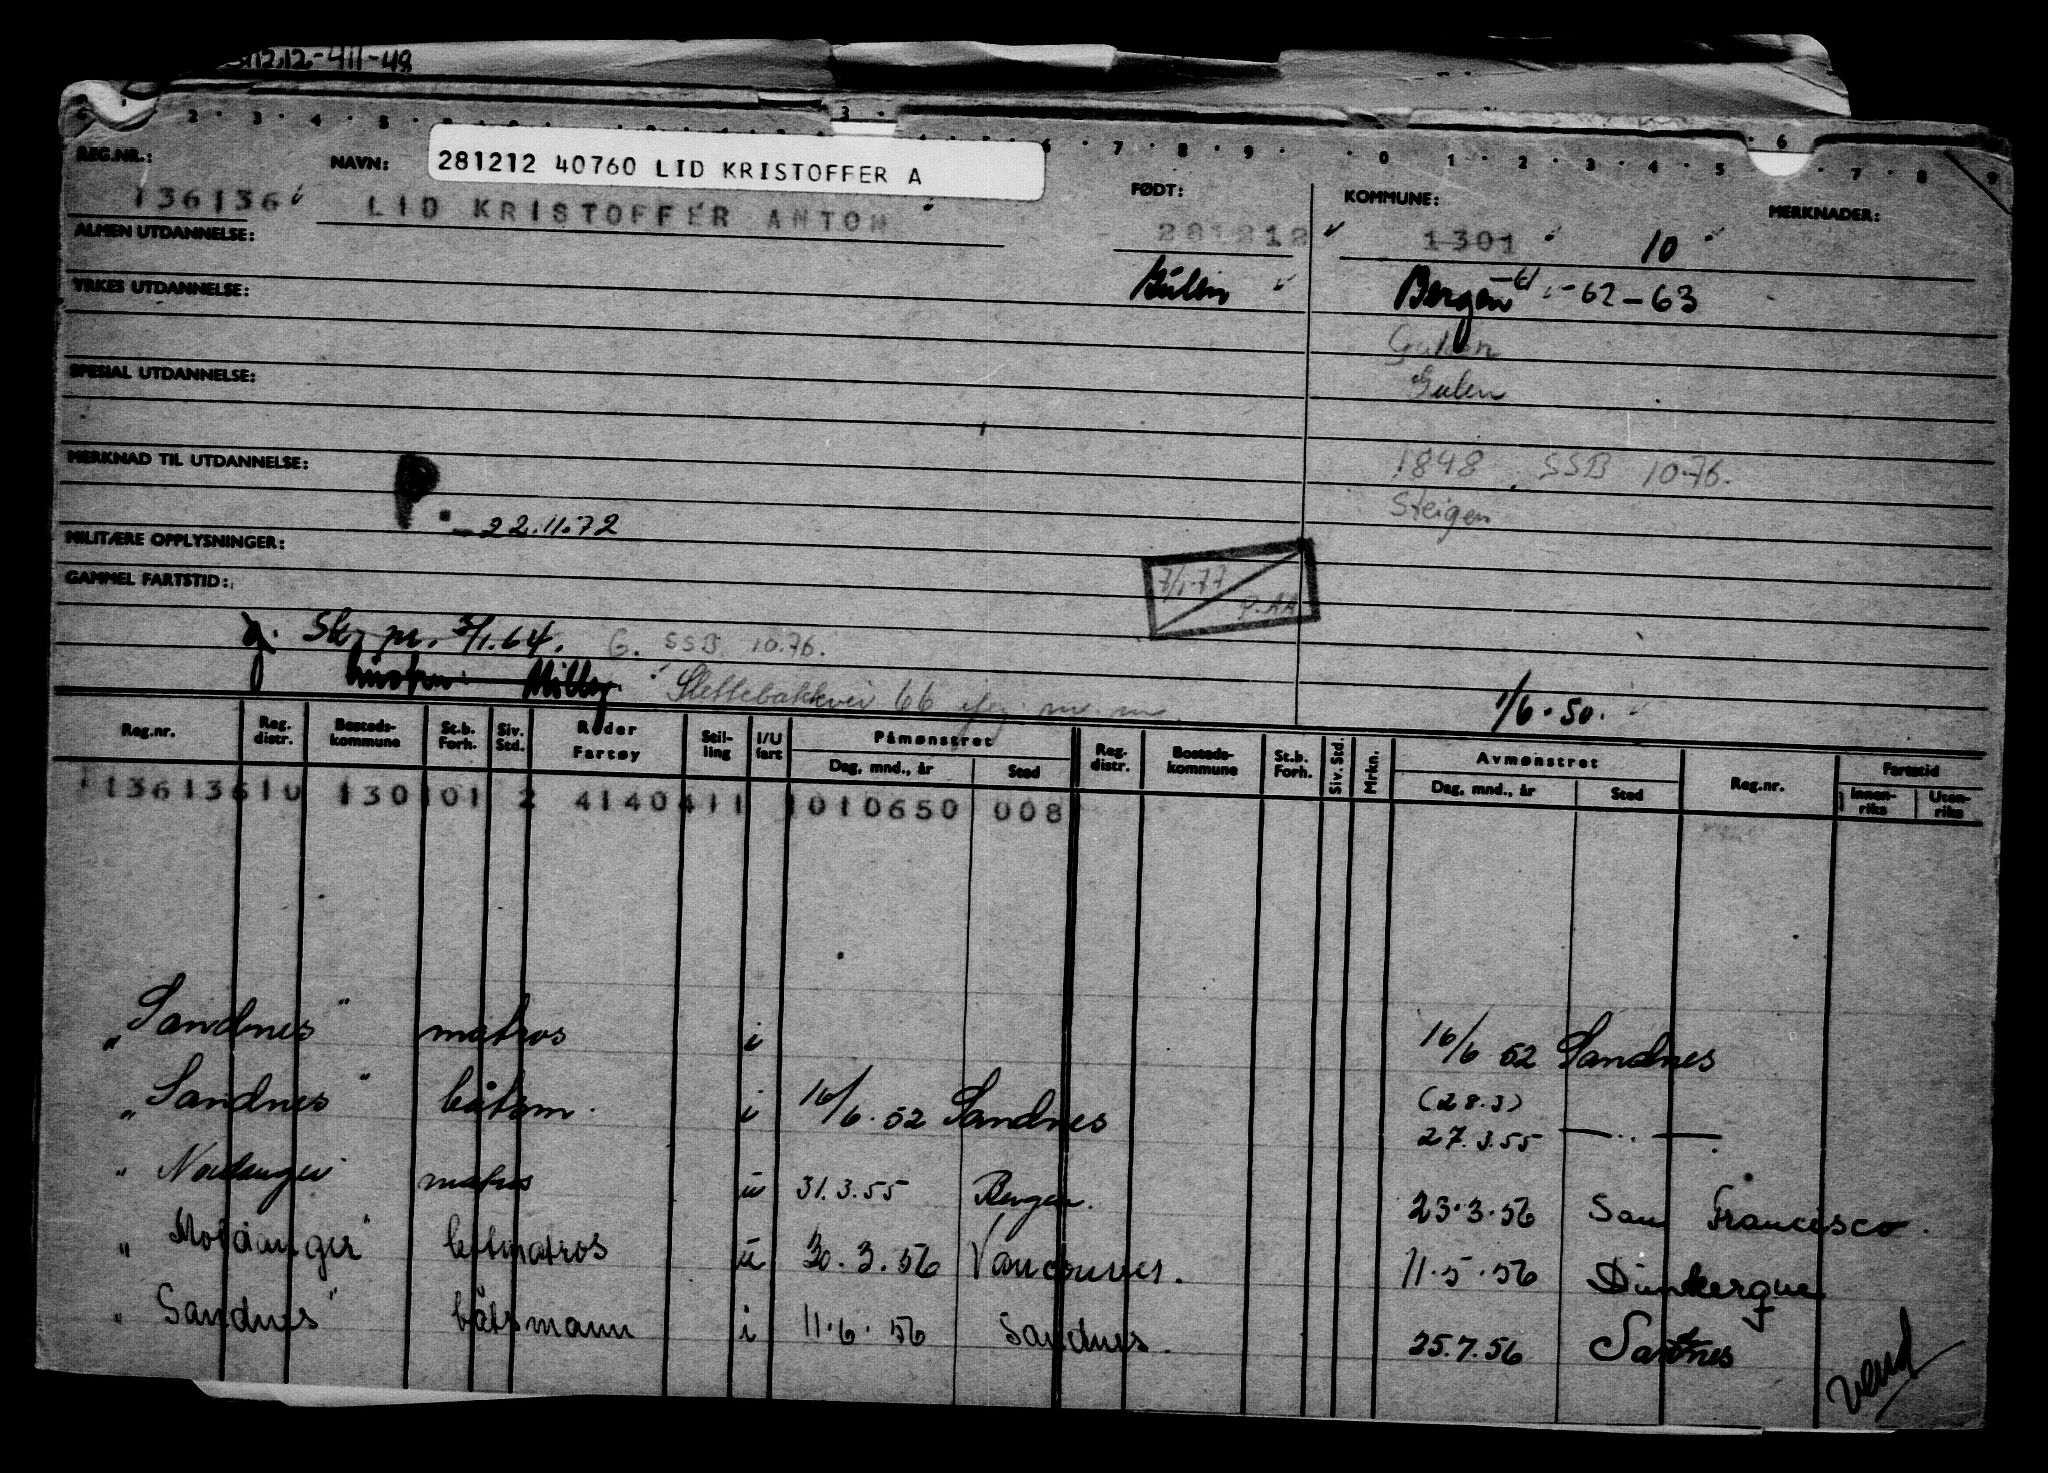 281212 40760 LID KRISTOFFER A
REG.NR.: 136136
NAVN: LID KRISTOFFER ANTON
FØDT: 281212
KOMMUNE: 1301 10
MERKNADER:
ALMEN UTDANNELSE:
Gulen
Bergen -61 -62-63
YRKES UTDANNELSE:
Gulen
SPESIAL UTDANNELSE:
Gulen
MERKNAD TIL UTDANNELSE:
1848 SSB 10.76.
Steigen
P. - 22.11.72
MILITÆRE OPPLYSNINGER:
GAMMEL FARTSTID:
7/1-77
P.AA
3/1.64. G. SSB 10.76.
Slettebakkvei 66
1/6.50.
Reg.nr. Reg. distr. Bosteds-kommune St.b. Forh. Siv. Std. Reder Fartøy Stil-ling I/U fart Påmønstret Dag, mnd., år Sted Reg. distr. Bosteds-kommune St.b. Forh. Siv. Std. Mrkn. Avmønstret Dag, mnd., år Sted Reg.nr. Fartstid Innen-riks Uten-riks
13613610 130101 2 4140411 1010650 008
„Sandnes" matros i 16/6 52 Sandnes
„Sandnes" båtsm. i 16/6.52 Sandnes (28.3) 27.3.55 —〃—
matros u 31.3.55 Bergen. 23.3.56 San Francisco.
„Moldanger" lettmatros u 30.3.56 Vancouver. 11.5.56 Dunkerque
„Sandnes" båtsmann i 11.6.56 Sandnes. 25.7.56 Sandnes
vend